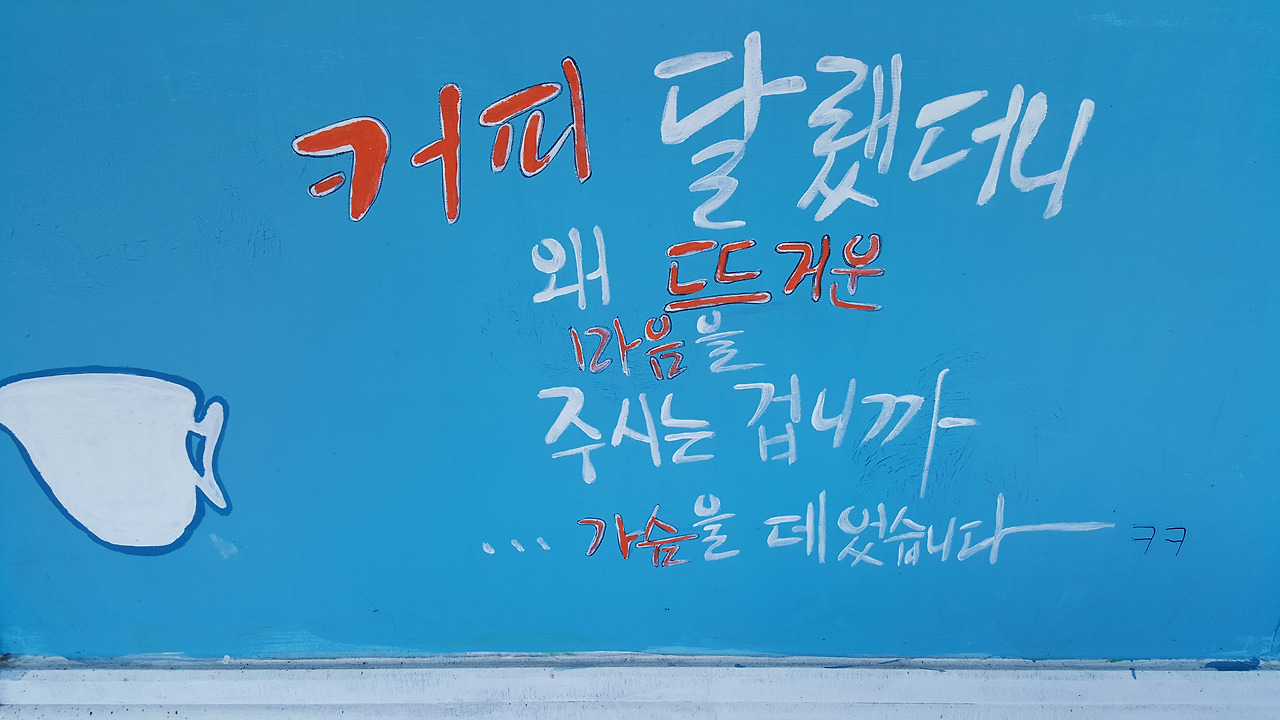 커피 달랬더니
왜 뜨거운
마음을
주시는 겁니까
... 가슴을 데었습니다 ㅋㅋ